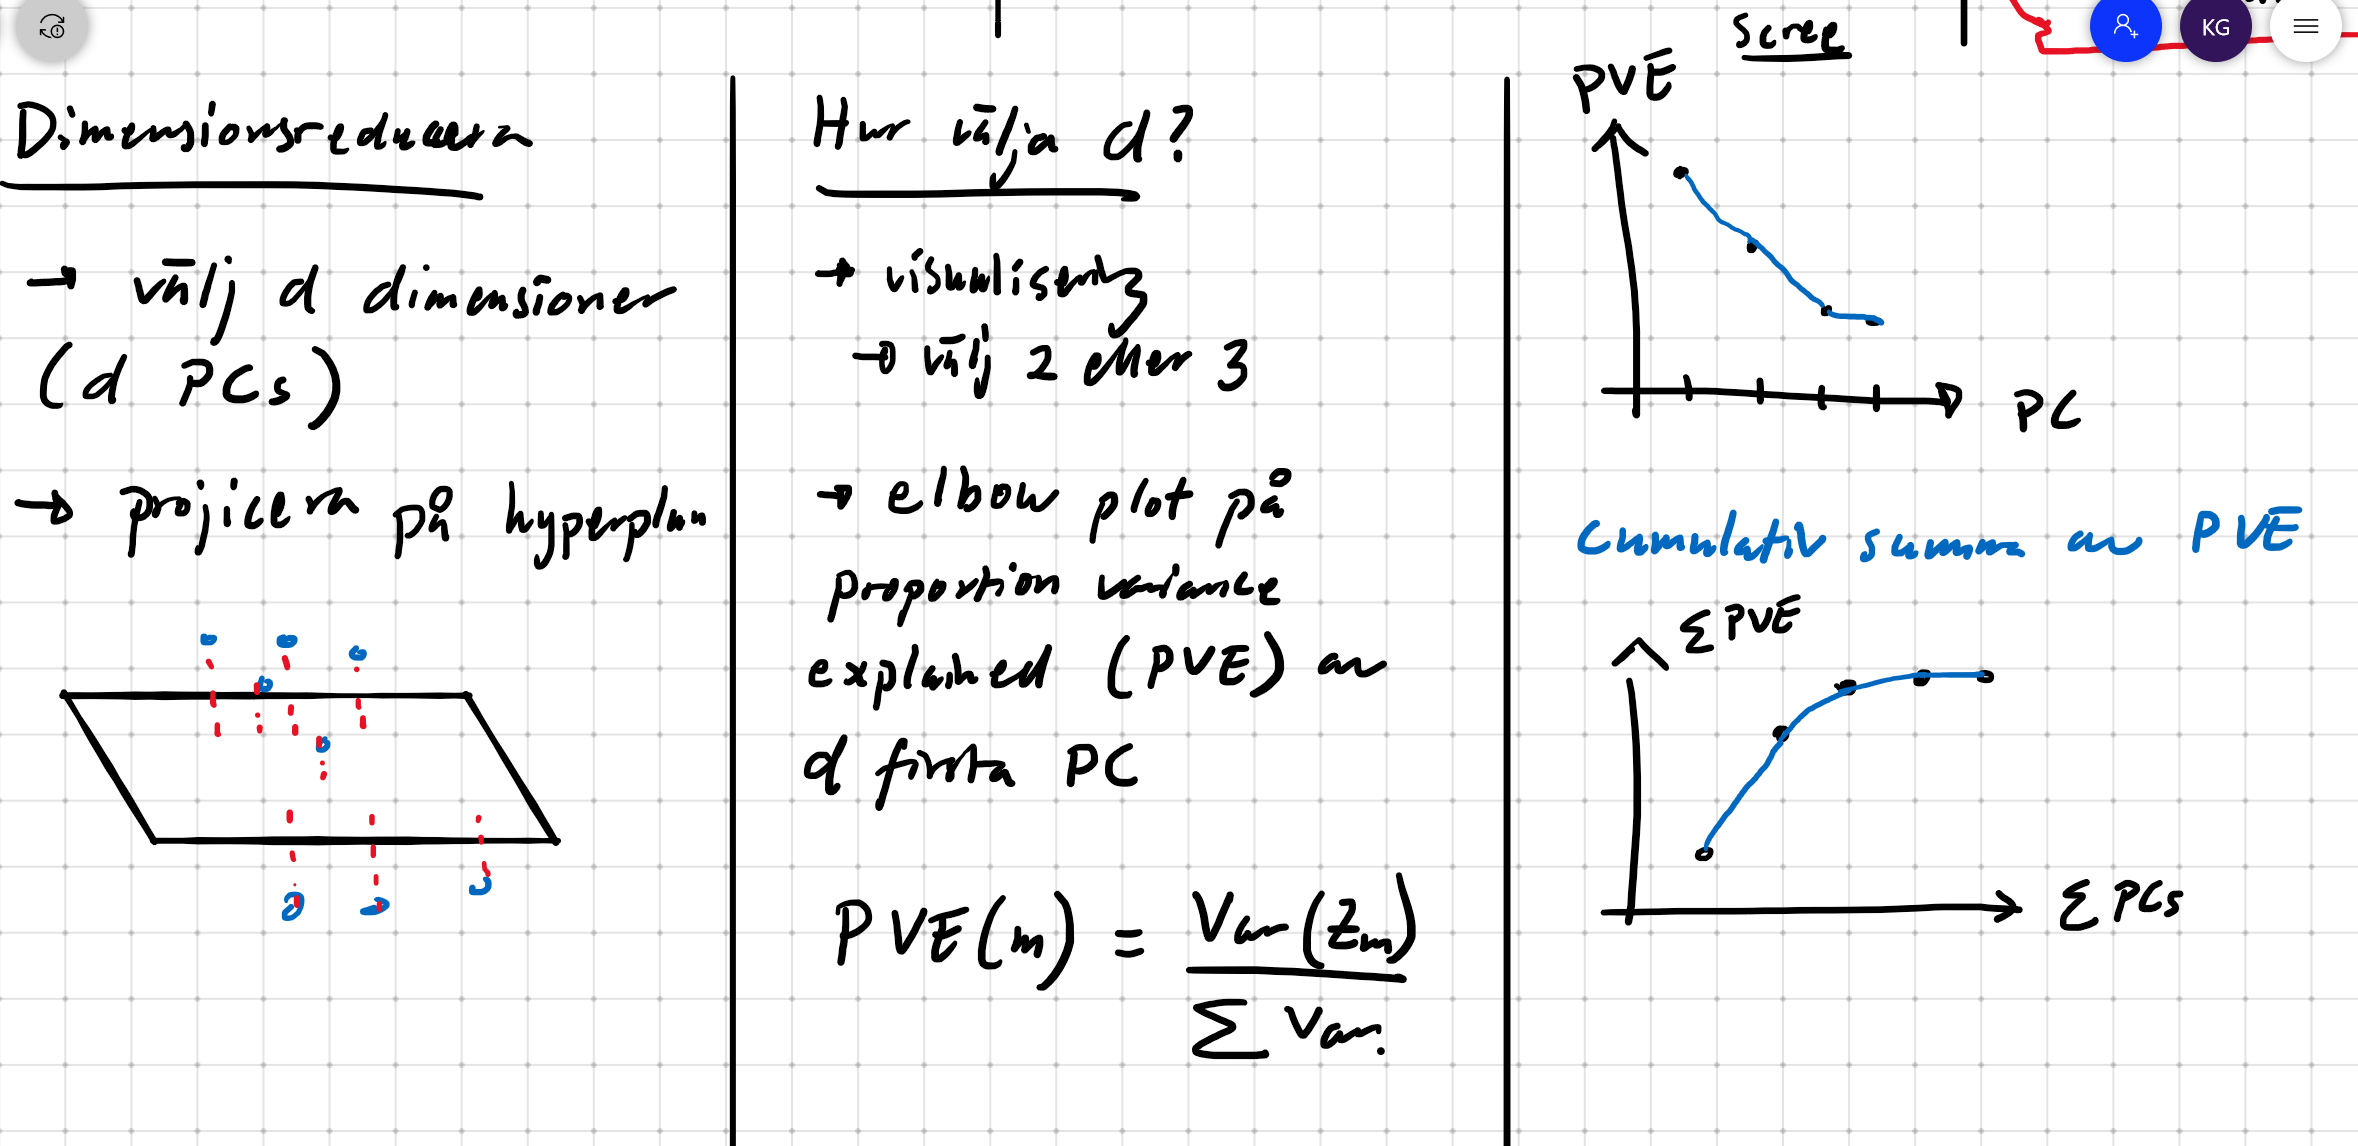 Dimensionsreducera
→ välj d dimensioner
(d PCs)
→ projicera på hyperplan
Hur välja d?
→ visualisering
→ välj 2 eller 3
→ elbow plot på
proportion variance
explained (PVE) av
d första PC
PVE(m) = Var(Zm)
∑ Var.
Scree
PVE
PC
Cumulativ summa av PVE
∑ PVE
∑ PCs
KG